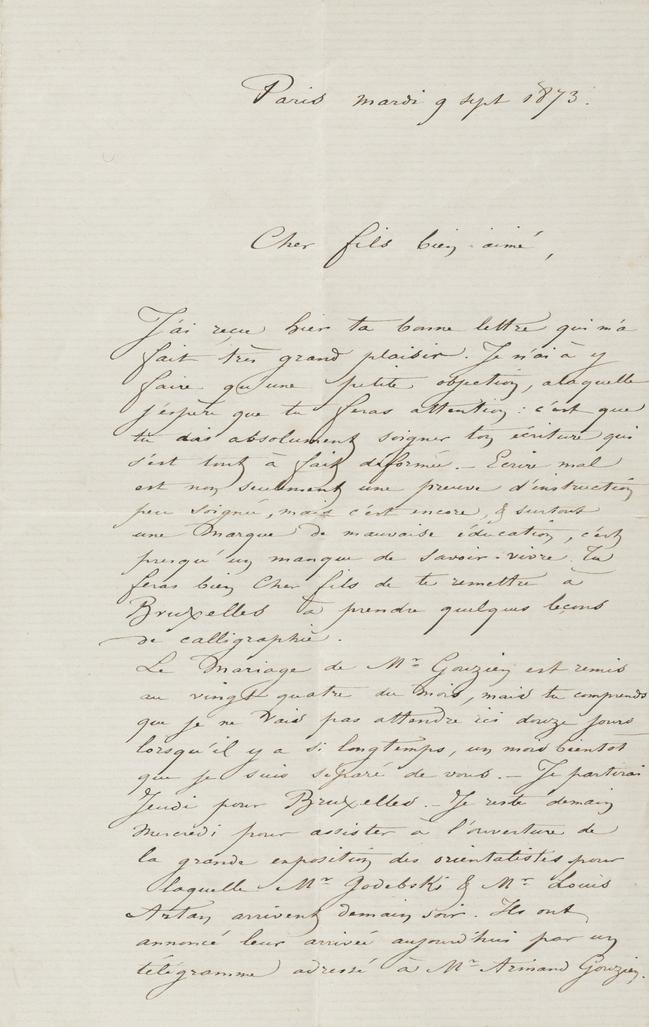 Paris mardi 9 sept 1873.
Cher fils bien-aimé,
J'ai reçu hier ta bonne lettre qui m'a
fait très grand plaisir. Je n'ai à y
faire qu'une petite objection, à laquelle
j'espère que tu feras attention : c'est que
tu dois absolument soigner ton écriture qui
s'est tout à fait déformée. – Écrire mal
est non seulement une preuve d'instruction
peu soignée, mais c'est encore, & surtout
une marque de mauvaise éducation, c'est
presqu'un manque de savoir-vivre. Tu
feras bien Cher fils de te remettre à
Bruxelles à prendre quelques leçons
de calligraphie.
Le Mariage de Mr Gouzien est remis
au vingt quatre du mois, mais tu comprends
que je ne vais pas attendre ici douze jours
lorsqu'il y a si longtemps, un mois bientot
que je suis séparé de vous. – Je partirai
Jeudi pour Bruxelles. – Je reste demain
Mercredi pour assister à l'ouverture de
la grande exposition des orientalistes pour
laquelle Mr Godebski & Mr Louis
Artan arrivent demain soir. Ils ont
annoncé leur arrivée aujourd'hui par un
télégramme adressé à Mr Armand Gouzien.